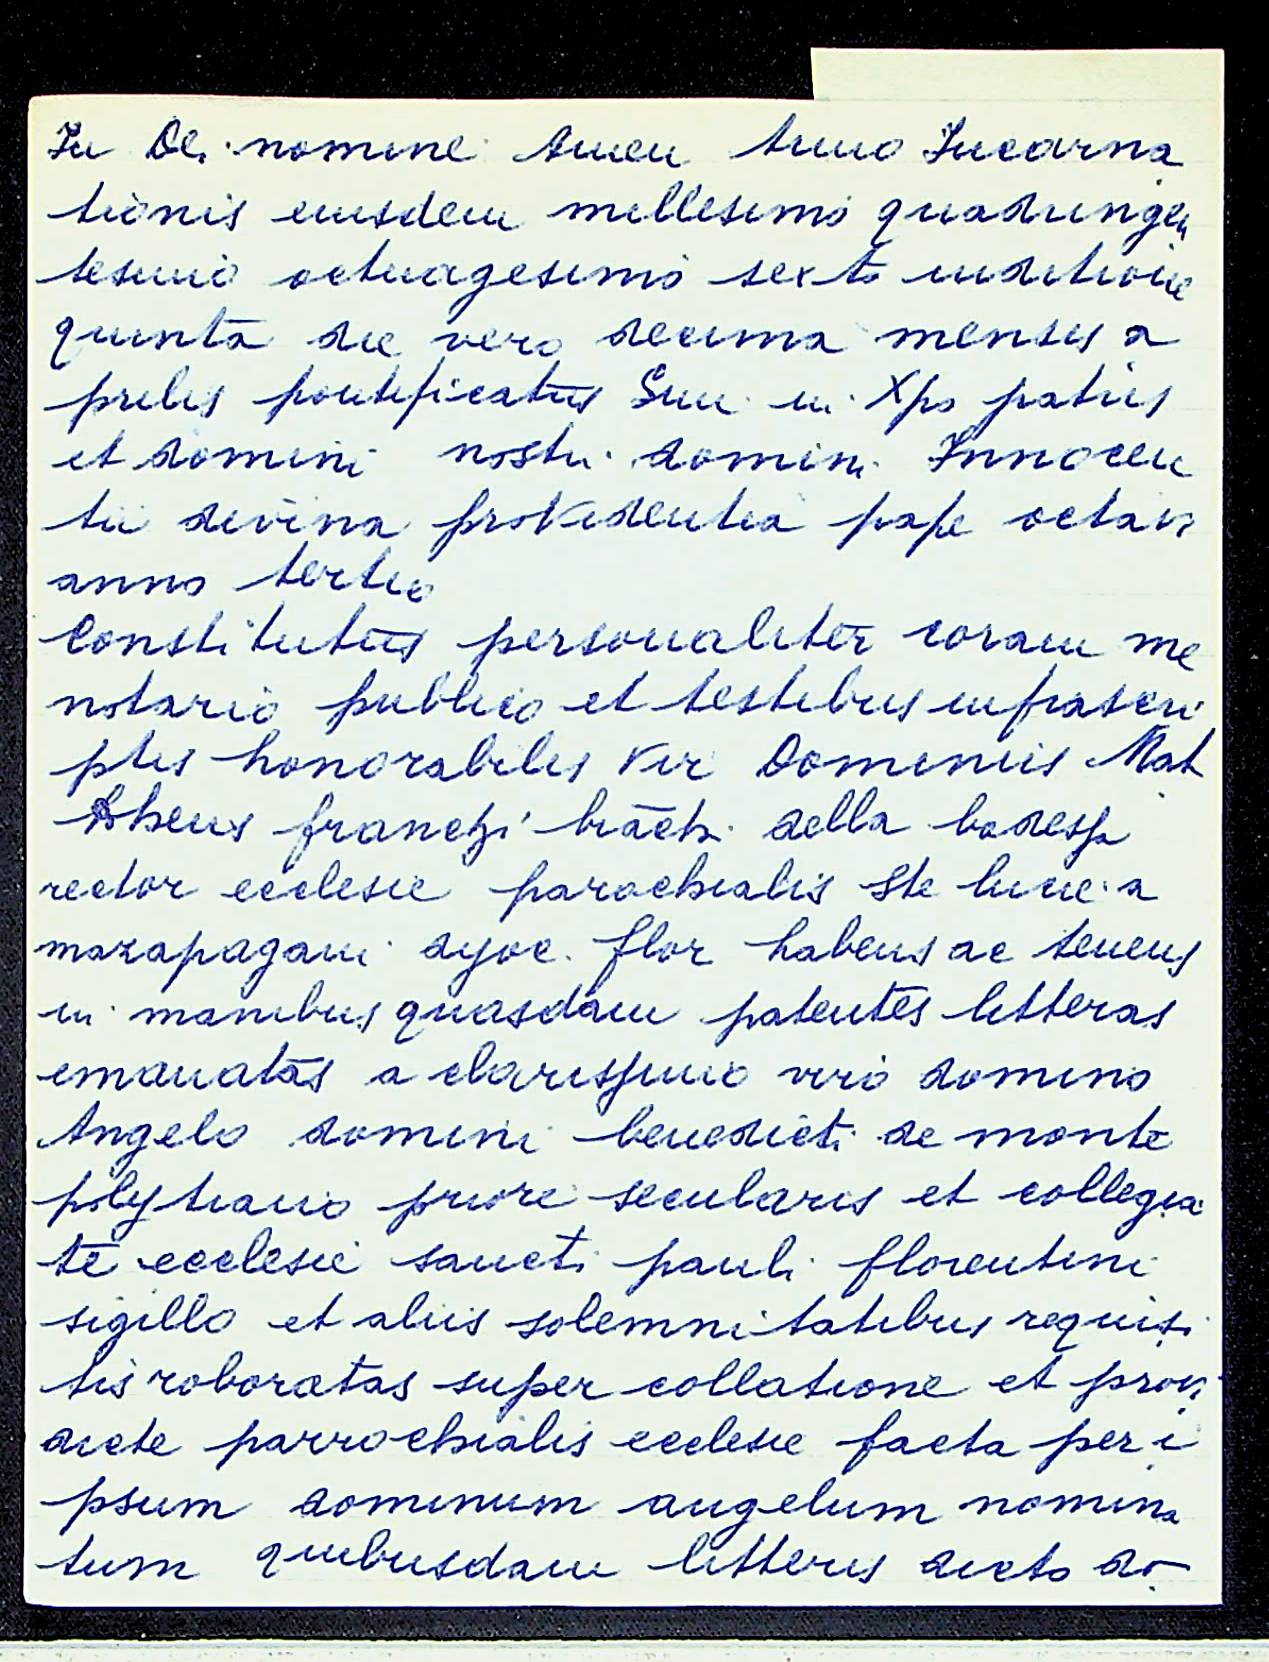 In Dei nomine Amen Anno Incarna
tionis eiusdem millesimo quadringen
tesimo octuagesimo sexto inditione
quinta die vero decima mensis a
prilis pontificatus Smi in Xpo patris
et domini nostri domini Innocen
tii divina providentia pape octavi
anno tertio
Constitutus personaliter coram me
notario publico et testibus infrascri
ptis honorabilis vir Dominus Mat
theus franchi della
rector ecclesie parochialis Ste lucie a
mazapagani dyoc. flor habens ac tenens
in manibus quasdam patentes litteras
emanatas a clarissimo viro domino
Angelo domini benedicti de monte
polytiano priore secularis et collegia
te ecclesie sancti pauli florentini
sigillo et aliis solemnitatibus requisi
tis roboratas super collatione et provi
dicte parrochialis ecclesie facta per i
psum dominum angelum nomina
tum quibusdam litteris dicto do